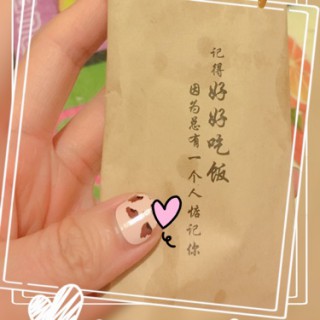 记得好好吃饭
因为总有一个人惦记你